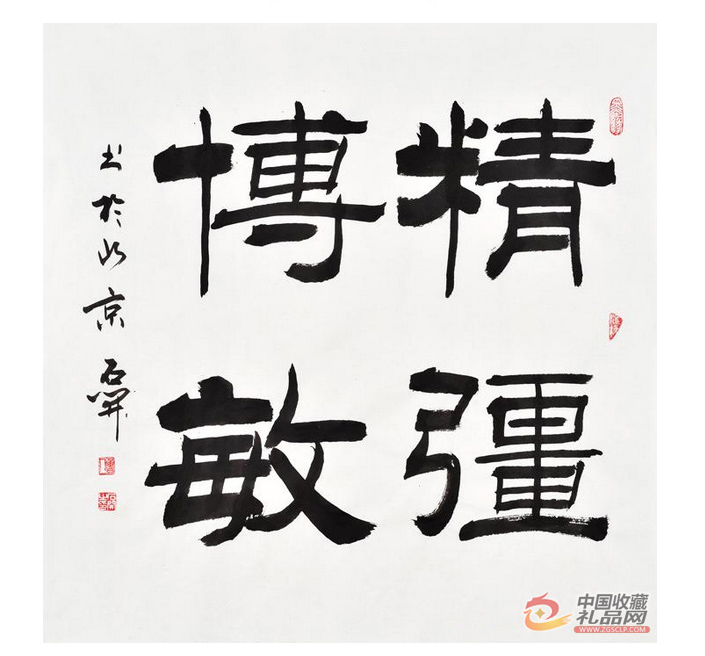 精彊
博敏
书於北京
中国收藏
礼品网
WWW.ZGSCLP.COM